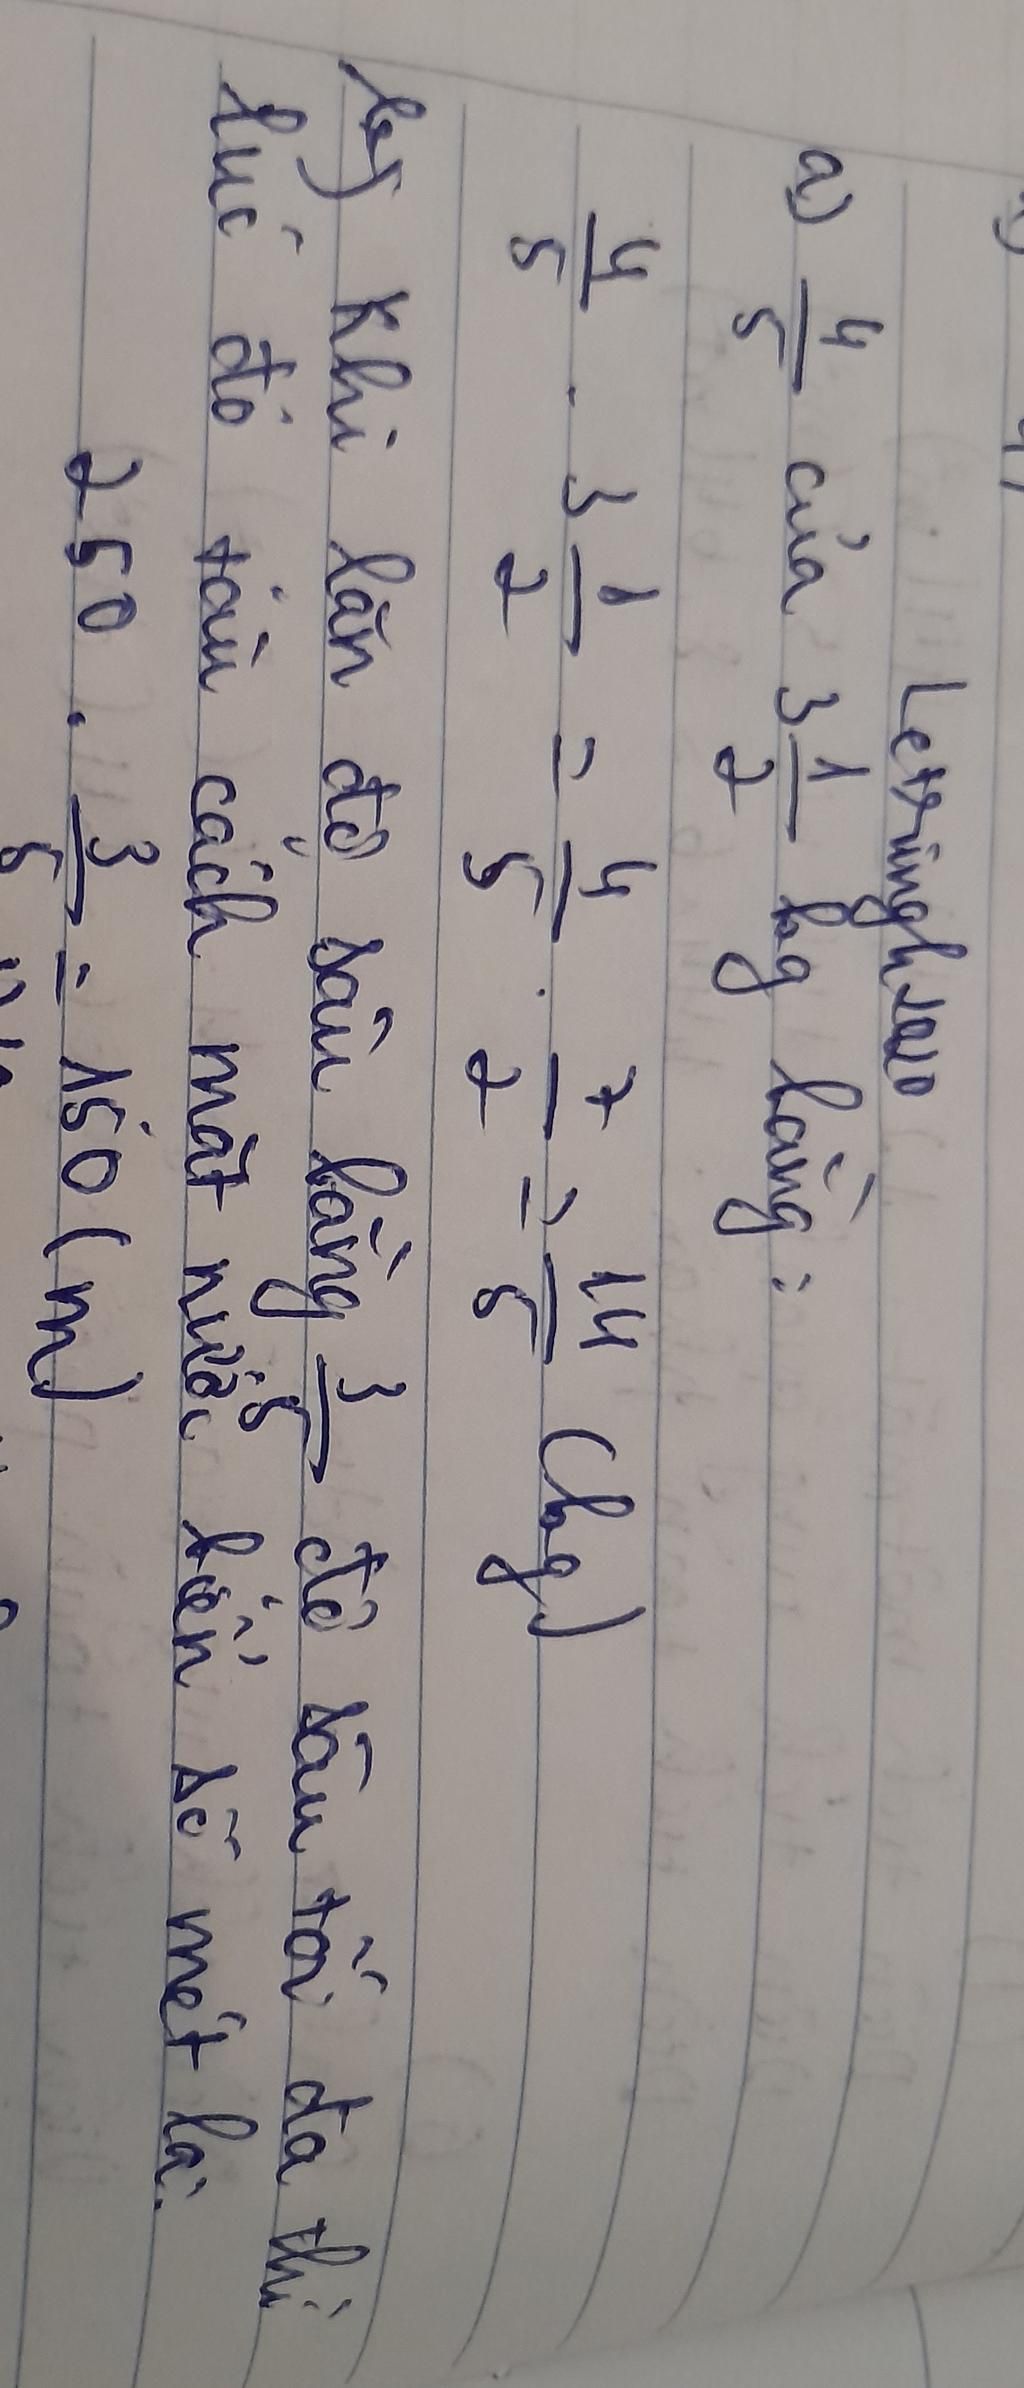 Letrungh2010
a) 4/5 của 3 1/2 kg bằng:
4/5 . 3 1/2 = 4/5 . 7/2 = 14/5 (kg)
b) Khi lặn độ sâu bằng 3/5 độ sâu tối đa thì
lúc đó tàu cách mặt nước biển số mét là:
250 . 3/5 = 150 (m)